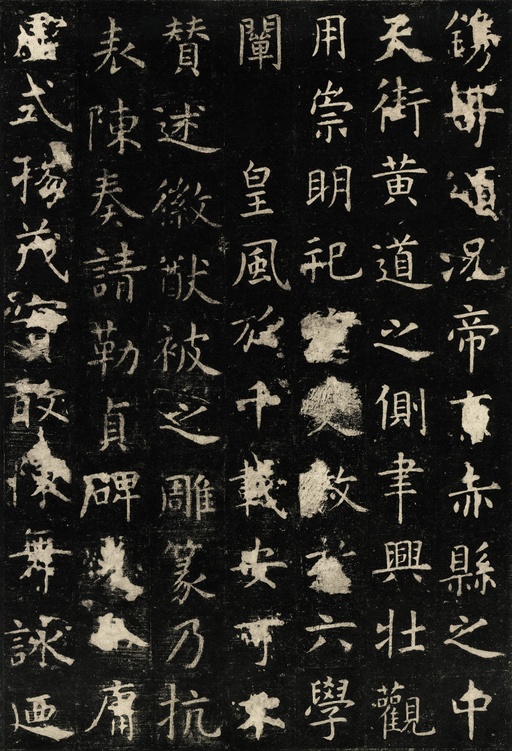 鐫況帝赤縣之中
天街黃道之側聿興壯觀
用崇明祀文教六學
闡皇風於千載安可不
贊述徽猷被之雕篆乃抗
表陳奏請勒貞碑庸
虛式揚茂實敢陳舞詠迺